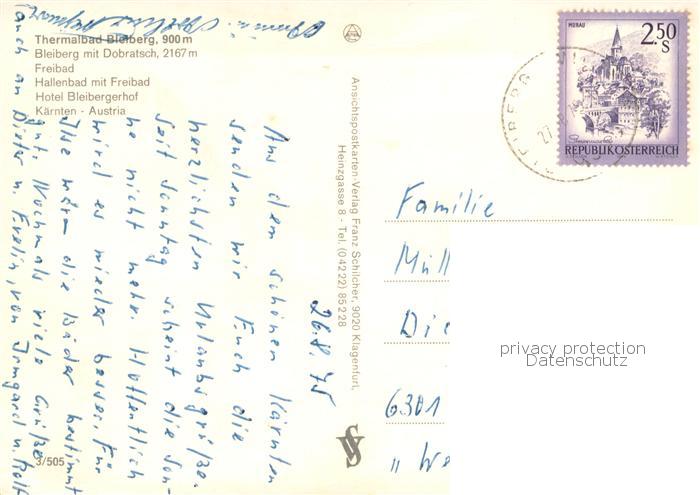 Thermalbad Bleiberg, 900 m
Bleiberg mit Dobratsch, 2167 m
Freibad
Hallenbad mit Freibad
Hotel Bleibergerhof
Kärnten - Austria
26.8.75
Aus dem schönen Kärnten
senden wir Euch die
herzlichsten Urlaubsgrüße.
Seit Sonntag scheint die Son-
ne nicht mehr. Hoffentlich
wird es wieder besser. Für
Ilse wären die Bäder bestimmt
gut. Nochmals viele Grüße
auch an Dieter u. Evelin, von Irmgard u. Rolf
3/505
Ansichtspostkarten-Verlag Franz Schilcher, 9020 Klagenfurt,
Heinzgasse 8 - Tel. (04222) 85228
MURAU
2.50
S
REPUBLIK ÖSTERREICH
Familie
Müll
Die
6301
„ We
privacy protection
Datenschutz